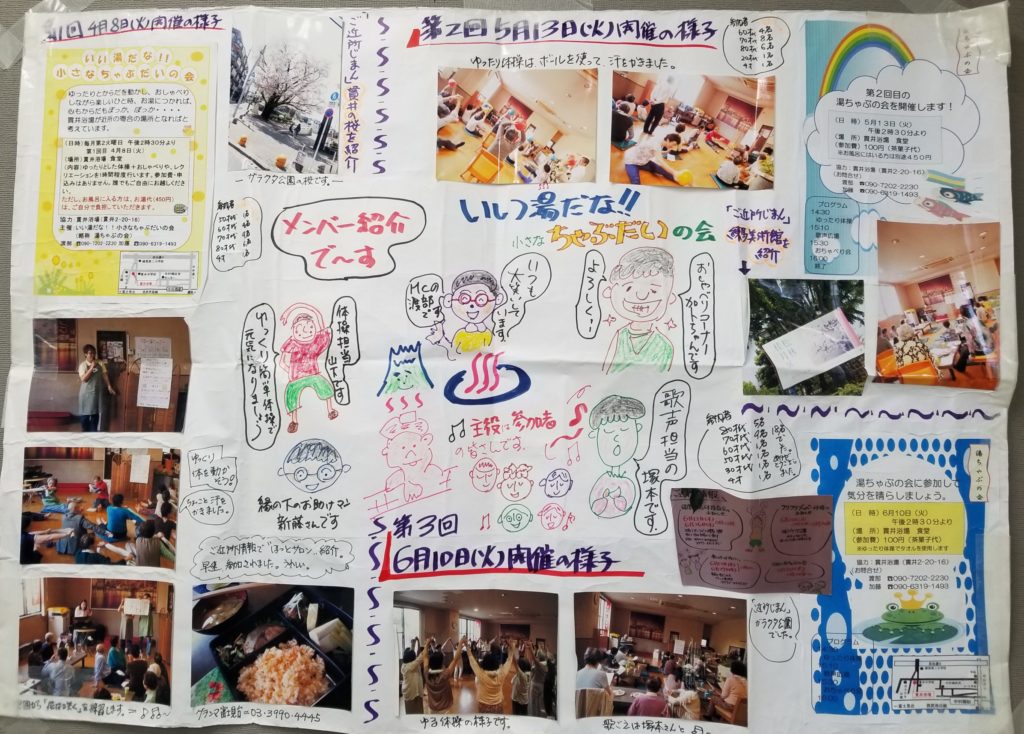 第1回 4月8日(火)開催の様子
いい湯だな!!
小さなちゃぶだいの会
ゆったりとからだを動かし、おしゃべり
しながら楽しいひと時、お湯につかれば、
心もからだもぽっか、ぽっか・・・・
貫井浴場が近所の寄合の場所となればと
考えています。
(日時)毎月第2火曜日 午後2時30分より
第1回目 4月8日(火)
(場所)貫井浴場 食堂
(内容)ゆったりとした体操+おしゃべりや、レク
リエーションを1時間程度行います。参加費・申
込みはありません。誰でもご自由にお越しくださ
い。
ただし、お風呂に入る方は、お湯代(450円)
は、ご自分で負担していただきます。
協力:貫井浴場(貫井2-20-16)
主催 いい湯だな!!小さなちゃぶだいの会
(略称 湯ちゃぶの会)
渡部 ☎090-7202-2230 加藤 ☎090-6319-1493
「ご近所じまん」
貫井の桜を紹介
ーガラクタ公園の桜です。ー
第2回 5月13日(火)開催の様子
ゆったり体操は、ボールを使って、汗をかきました。
参加者
60才代 4名
70才代 8名
80才代 6名
20才代 1名
4才 1名
湯ちゃぶの会
第2回目の
湯ちゃぶの会を開催します!
(日 時)5月13日(火)
午後2時30分より
(場 所)貫井浴場 食堂
(参加費)100円(茶菓子代)
※お風呂にはいる方は別途450円
協力:貫井浴場(貫井2-20-16)
(お問合せ)
渡部 ☎090-7202-2230
加藤 ☎090-6319-1493
プログラム
14:30
ゆったり体操
15:10
歌声広場
15:30
おしゃべり会
16:00
終了
いい湯だな!!
小さな ちゃぶだいの会
「ご近所じまん」
美術館を
紹介
参加者
メンバー紹介
で〜す
体操担当の
山下です
ゆっくり簡単体操で
元気になりましょう
いつも
大笑いして
います。
MCの
渡部で
す
よろしくー!
おしゃべりコーナー
加トちゃんです
歌声担当の
塚本です。
主役は参加者
の皆さんです。
縁の下のお助けマン
新藤さんです
ゆっくり
体を動か
そう!
ちょっと汗を
かきました。
ご近所情報で「ほっとサロン」紹介。
早速参加されました。うれしい。
第3回
6月10日(火)開催の様子
参加者
80才代
70才代
60才代
50才代
30才代
4才
「近所じまん」
ガラクタ公園
でした。
湯ちゃぶの会
湯ちゃぶの会に参加して
気分を晴らしましょう。
(日 時)6月10日(火)
午後2時30分より
(場 所)貫井浴場 食堂
(参加費)100円(茶菓子代)
※ゆったり体操でタオルを使用します
協力:貫井浴場(貫井2-20-16)
(お問合せ)
渡部 ☎090-7202-2230
加藤 ☎090-6319-1493
プログラム
ゆったり体操
おしゃべり会
を練習します。
グランマ電話=03-3990-4445
ゆる体操の様子です。
歌ごえは塚本さんと